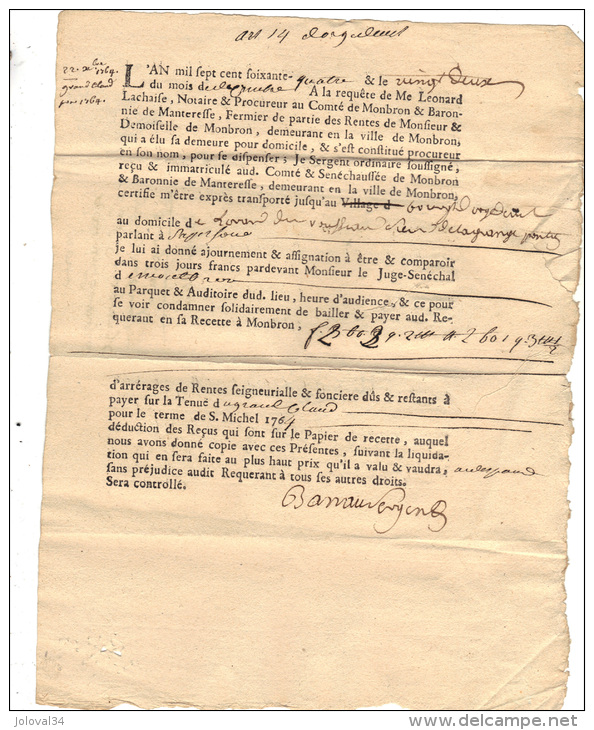 art 14 d'orgedeuil
22 xbre 1764
grand claud
pour 1764
L'AN mil sept cent soixante-quatre & le vingt deux
du mois de decembre A la requête de Me Léonard
Lachaise, Notaire & Procureur au Comté de Monbron & Baron-
nie de Manteresse, Fermier de partie des Rentes de Monsieur &
Demoiselle de Monbron, demeurant en la ville de Monbron,
qui a élu sa demeure pour domicile, & s'est constitué procureur
en son nom, pour se dispenser; Je Sergent ordinaire soussigné,
reçu & immatriculé aud. Comté & Senéchaussée de Monbron
& Baronnie de Manteresse, demeurant en la ville de Monbron,
certifie m'être exprès transporté jusqu'au Village d bourg d'orgedeuil
au domicile de
parlant à Sa personne
je lui ai donné ajournement & assignation à être & comparoir
dans trois jours francs pardevant Monsieur le Juge-Senéchal
d
au Parquet & Auditoire dud. lieu, heure d'audience, & ce pour
se voir condamner solidairement de bailler & payer aud. Re-
querant en sa Recette à Monbron,
d'arrérages de Rentes seigneurialle & fonciere dûs & restants à
payer sur la Tenue du grand Claud
pour le terme de S. Michel 1764
déduction des Reçus qui sont sur le Papier de recette, auquel
nous avons donné copie avec ces Présentes, suivant la liquida-
tion qui en sera faite au plus haut prix qu'il a valu & vaudra,
sans préjudice audit Requerant à tous ses autres droits.
Sera controllé.
Sergent
joloval34
http://www.delcampe.net